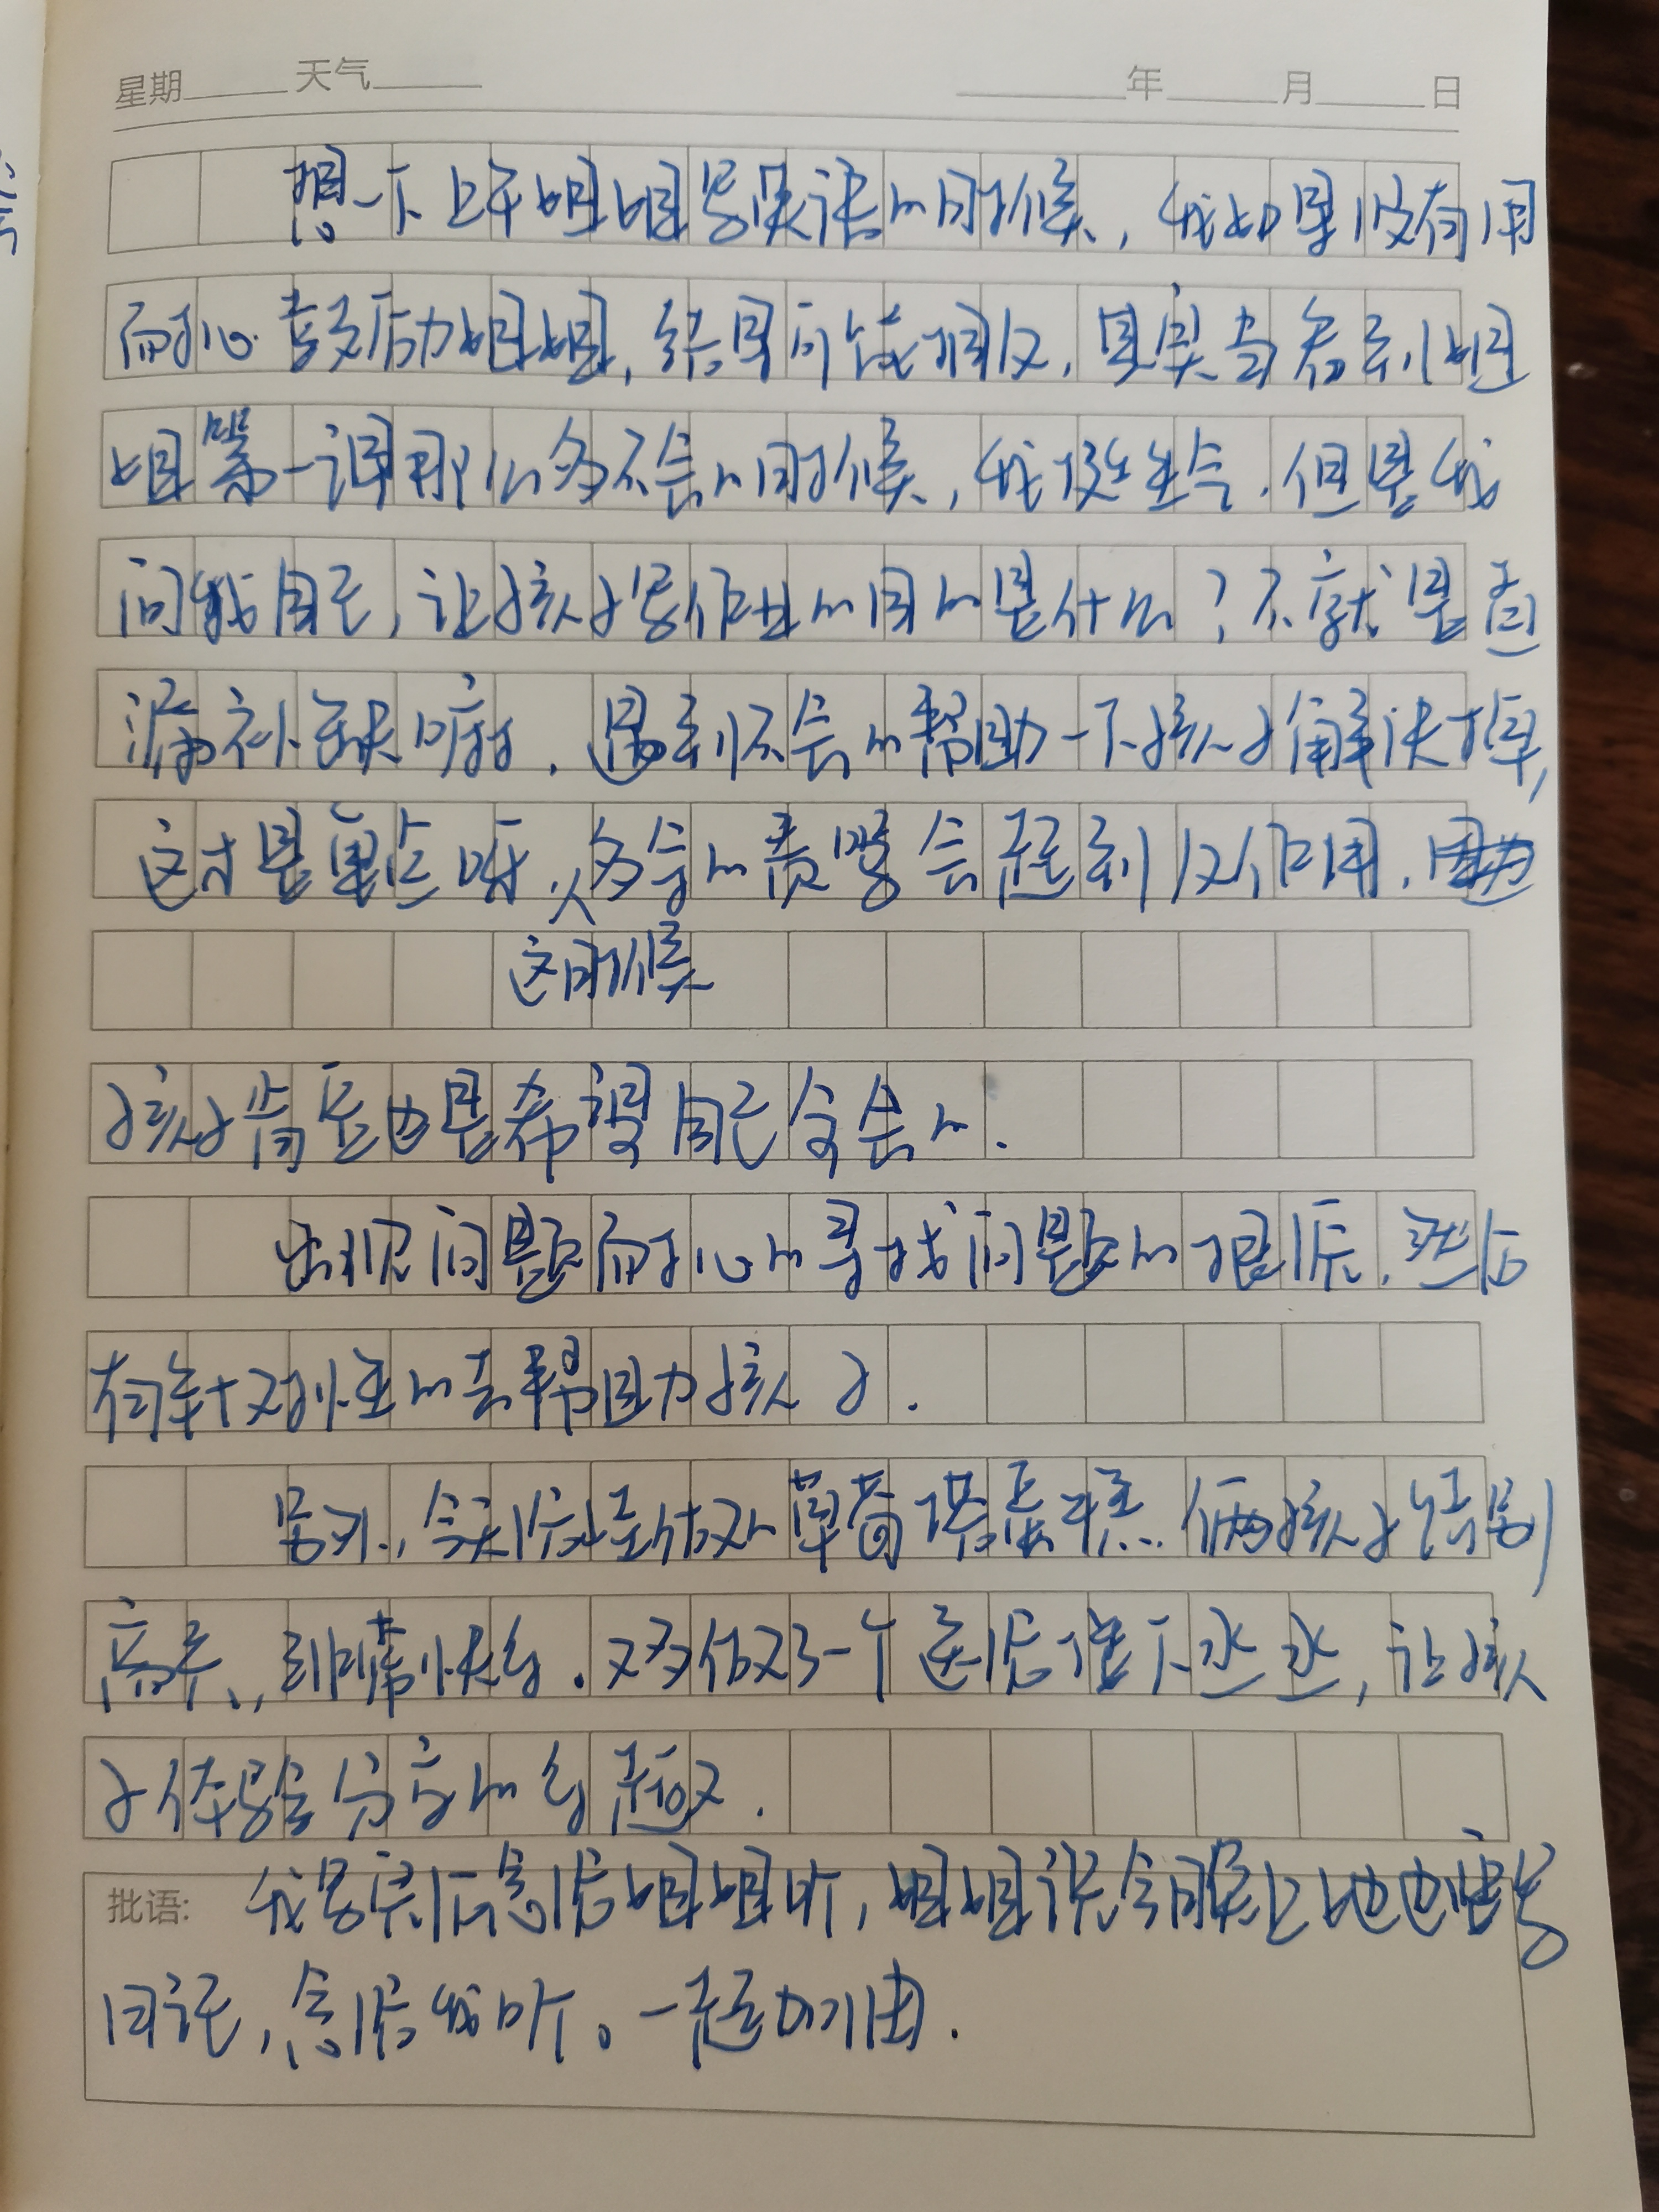 星期 天气 年 月 日
想一下上午姐姐写英语的时候,我如果没有用
耐心鼓励姐姐,结果可能相反,其实当看到姐
姐第一课那么多不会的时候,我很生气.但是我
问我自己,让孩子写作业的目的是什么?不就是查
漏补缺嘛.遇到不会的帮助一下孩子解决掉,
这才是重点呀.多余的责骂会起到反作用.
这时候
孩子肯定也是希望自己全会的.
出现问题耐心的寻找问题的根源.然后
有针对性的去帮助孩子.
另外,今天给娃做的草莓塔蛋糕.俩孩子特别
高兴,非常快乐.又多做了一个送给楼下,让孩
子体验分享的乐趣.
批语: 我写完后念给姐姐听,姐姐说今晚上她也要写
日记,念给我听。一起加油.